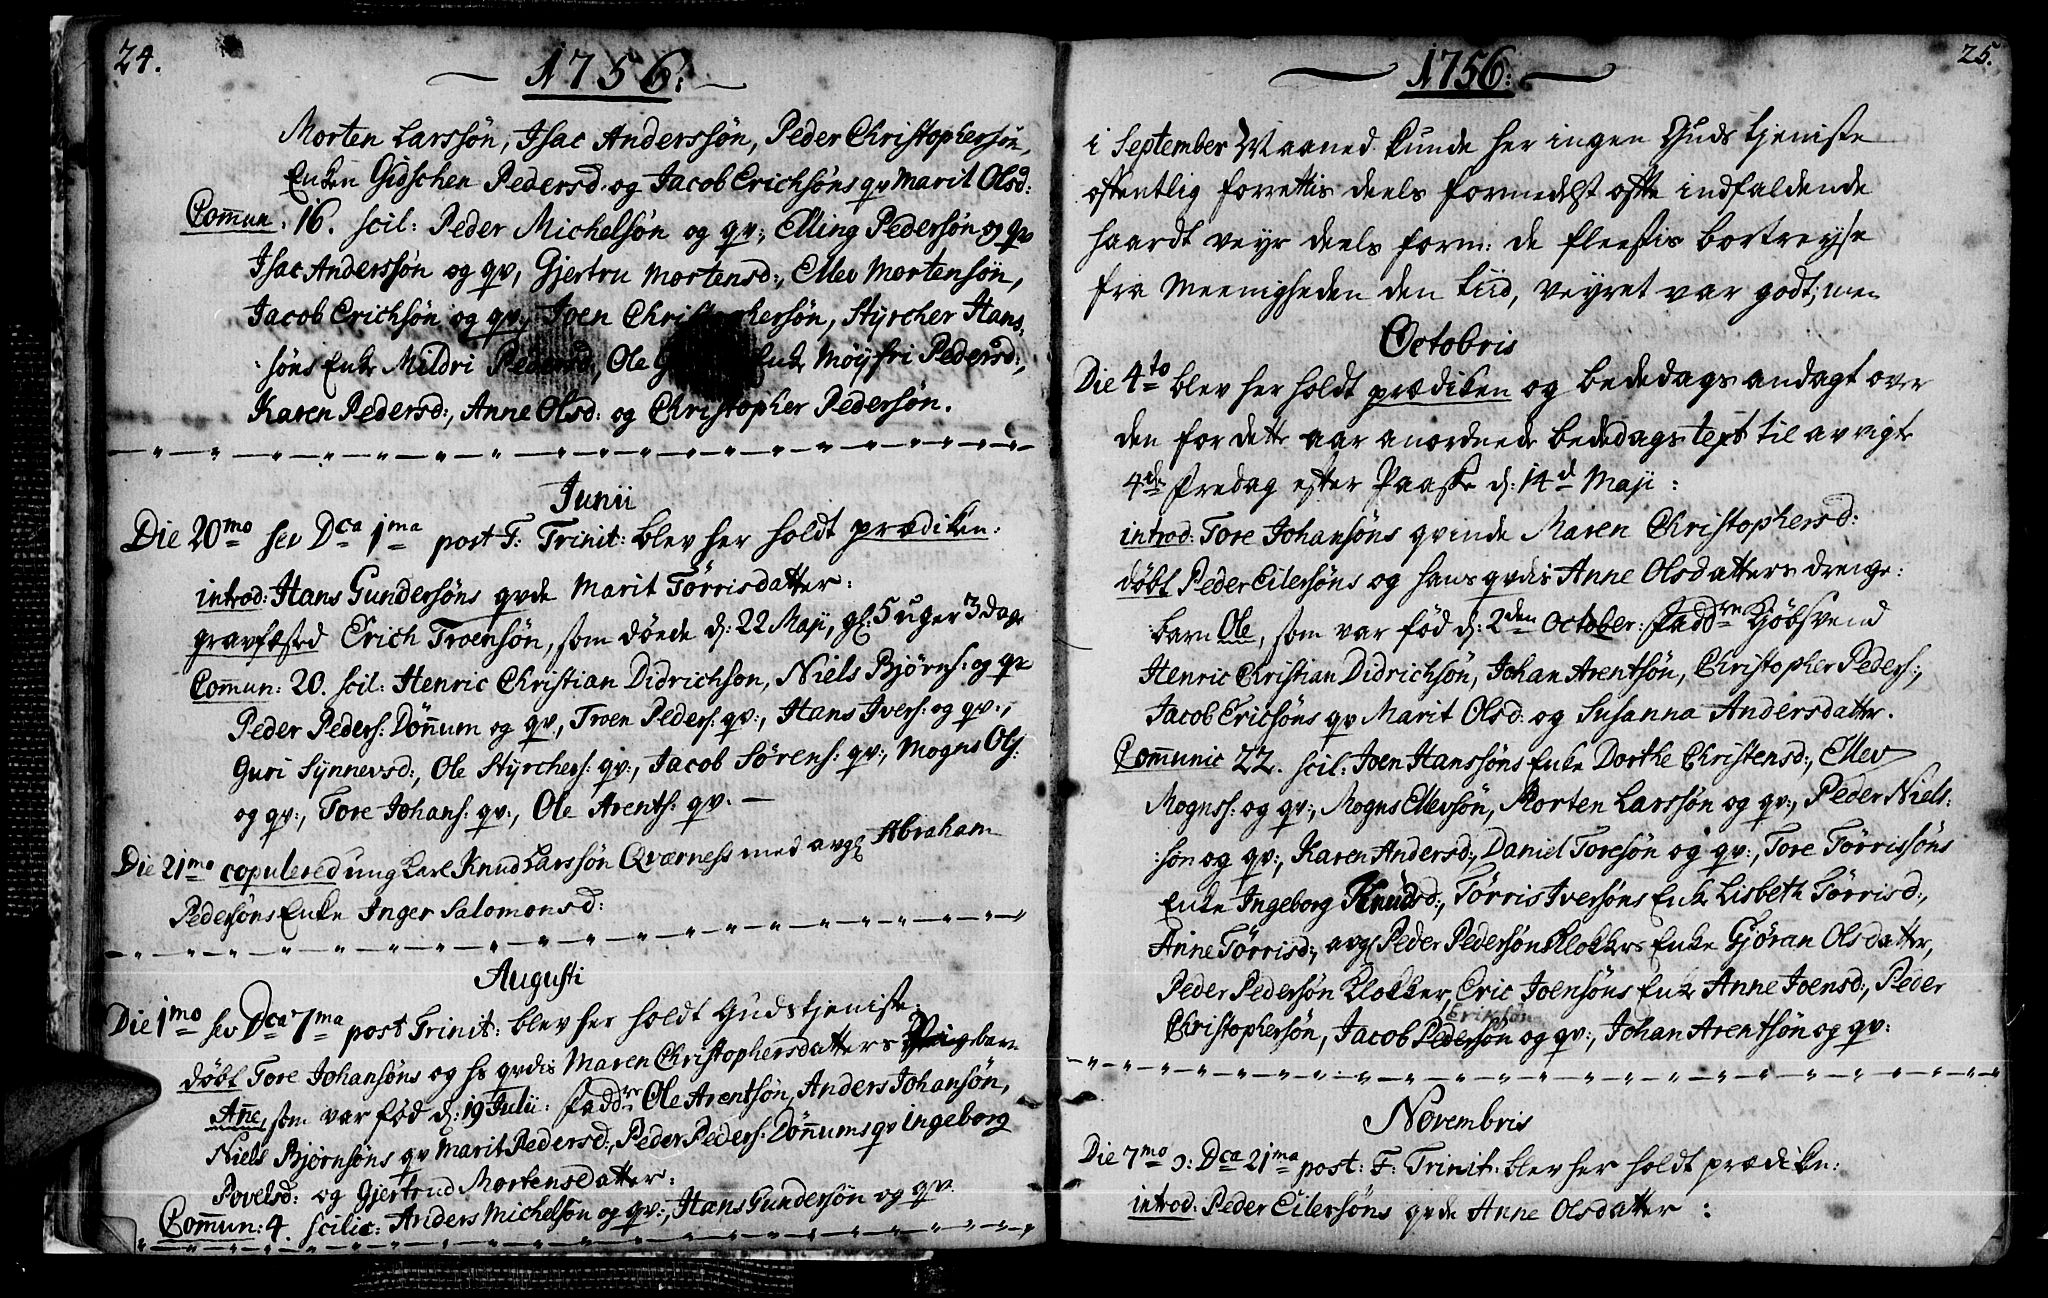 24.
1756:
Morten Larssøn, Isac Anderssøn, Peder Christophersøn,
Enken Gidschen Pedersd. og Jacob Erichsøns qv Marit Olsd:
Comun. 16. scil: Peder Michelsøn og qv:, Elling Pedersøn og qv
Isac Anderssøn og qv, Gjertru Mortensd:, Ellev Mortensøn,
Jacob Erichsøn og qv:, Joen Christophersøn, Styrcher Hans-
søns Enke Mildri Pedersd:, Ole Enke Møyfri Pedersd:,
Karen Pedersd:, Anne Olsd: og Christopher Pedersøn.
Junii
Die 20mo sev Dca 1ma post F: Trinit: blev her holdt prædiken:
introd: Hans Gundersøns qvde Marit Tørrisdatter:
gravfæsted Erich Troensøn, som døede d: 22 Maji, gl: 5 uger 3 dage
Comun: 20. scil: Henric Christian Didrichson, Niels Bjørns: og qv
Peder Peders: Dønnum og qv, Troen Peders: qv:, Hans Ivers: og qv:,
Guri Synnevsd:, Ole Styrchers: qv:, Jacob Sørens: qv:, Mogns Ols:
og qv:, Tore Johans: qv:, Ole Arents: qv. —
Die 21mo copulered ung karl Knud Larssøn Qværness med avgl Abraham
Pedersøns Enke Inger Salomonsd:
Augusti
Die 1mo sev Dca 7ma post Trinit: blev her holdt Gudstjeniste:
døbt Tore Johansøns og hs qvdis Maren Christophersdatters Pigebarn
Anne, som var fød d: 19 Julii: faddre Ole Arentsøn, Anders Johansøn,
Niels Bjørnsøns qv Marit Pedersd:, Peder Peders: Dønnums qv Ingeborg
Povelsd: og Gjertrud Mortensdatter:
Comun: 4. scilic: Anders Michelsøn og qv:, Hans Gundersøn og qv.
25.
1756:
i September Maaned kunde her ingen Guds tjeniste
ofentlig forrettis deels formedelst ofte indfaldende
haardt veyr deels form: de fleestis bortreyse
fra Meenigheden den tiid, veyret var godt; men
Octobris
Die 4to blev her holdt prædiken og bededags andagt over
den for dette aar anordnede bededags text til avvigte
4de fredag efter Paaske d: 14d Maji:
introd: Tore Johansøns qvinde Maren Christophersd:
døbt Peder Eilersøns og hans qvdis Anne Olsdatters drenge:
barn Ole, som var fød d: 2den October: faddre Kjøbsvend
Henric Christian Didrichsøn, Johan Arentsøn, Christopher Peders:,
Jacob Ericsøns qv Marit Olsd: og Susanna Andersdatter.
Comunic 22. scil: Joen Hanssøns Enke Dorthe Christensd:, Ellev
Mognss: og qv:, Mogns Ellevsøn, Morten Larssøn og qv:, Peder Niels:
:søn og qv:, Karen Andersd:, Daniel Toresøn og qv:, Tore Tørrissøns
Enke Ingeborg Knudsd:, Tørris Iversøns Enke Lisbeth Tørrisd:,
Anne Tørrisd:, avgl Peder Pedersøn Klokkers Enke Gjøran Olsdatter,
Peder Pedersøn Klokker, Eric Joensøns Enke Anne Joensd:, Peder
Eriksøn
Christophersøn, Jacob Pedersøn og qv:, Johan Arentsøn og qv:
Novembris
Die 7mo ɔ: Dca 21ma post: F: Trinit: blev her holdt prædiken:
introd: Peder Eilersøns qvde Anne Olsdatter :